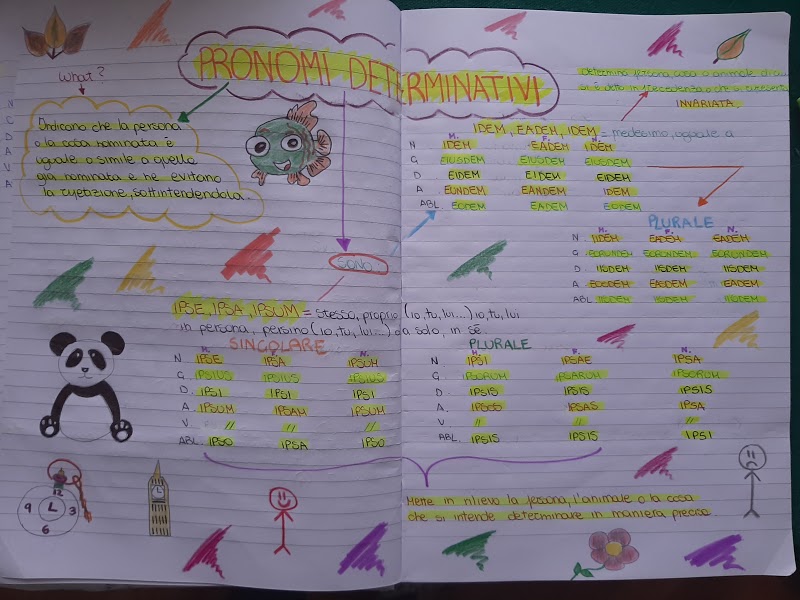 PRONOMI DETERMINATIVI
What?
Indicano che la persona
o la cosa nominata è
uguale o simile a quella
già nominata e ne evitano
la ripetizione, sottintendendola.
SONO:
determina persona, cosa o animale di cui
INVARIATA
IDEM, EADEM, IDEM = medesimo, uguale a
M. F. N.
N IDEM EADEM IDEM
G EIUSDEM EIUSDEM EIUSDEM
D EIDEM EIDEM EIDEM
A EUNDEM EANDEM IDEM
ABL EODEM EADEM EODEM
PLURALE
M. F. N.
N IIDEM EADEM EADEM
G EORUNDEM EORUNDEM EORUNDEM
D IISDEM IISDEM IISDEM
A EOSDEM EASDEM EADEM
ABL IISDEM IISDEM IISDEM
IPSE, IPSA, IPSUM = stesso, proprio (io, tu, lui...) io, tu, lui
in persona, persino (io, tu, lui...) da solo, in sé.
SINGOLARE
M. F. N.
N IPSE IPSA IPSUM
G. IPSIUS IPSIUS IPSIUS
D. IPSI IPSI IPSI
A IPSUM IPSAM IPSUM
V // // //
ABL. IPSO IPSA IPSO
PLURALE
M. F. N.
N IPSI IPSAE IPSA
G. IPSORUM IPSARUM IPSORUM
D. IPSIS IPSIS IPSIS
A. IPSOS IPSAS IPSA
V. // // //
ABL. IPSIS IPSIS IPSI
Mette in rilievo la persona, l'animale o la cosa
che si intende determinare in maniera precisa.
12
9 L 3
6
L
N
G
D
A
V
A